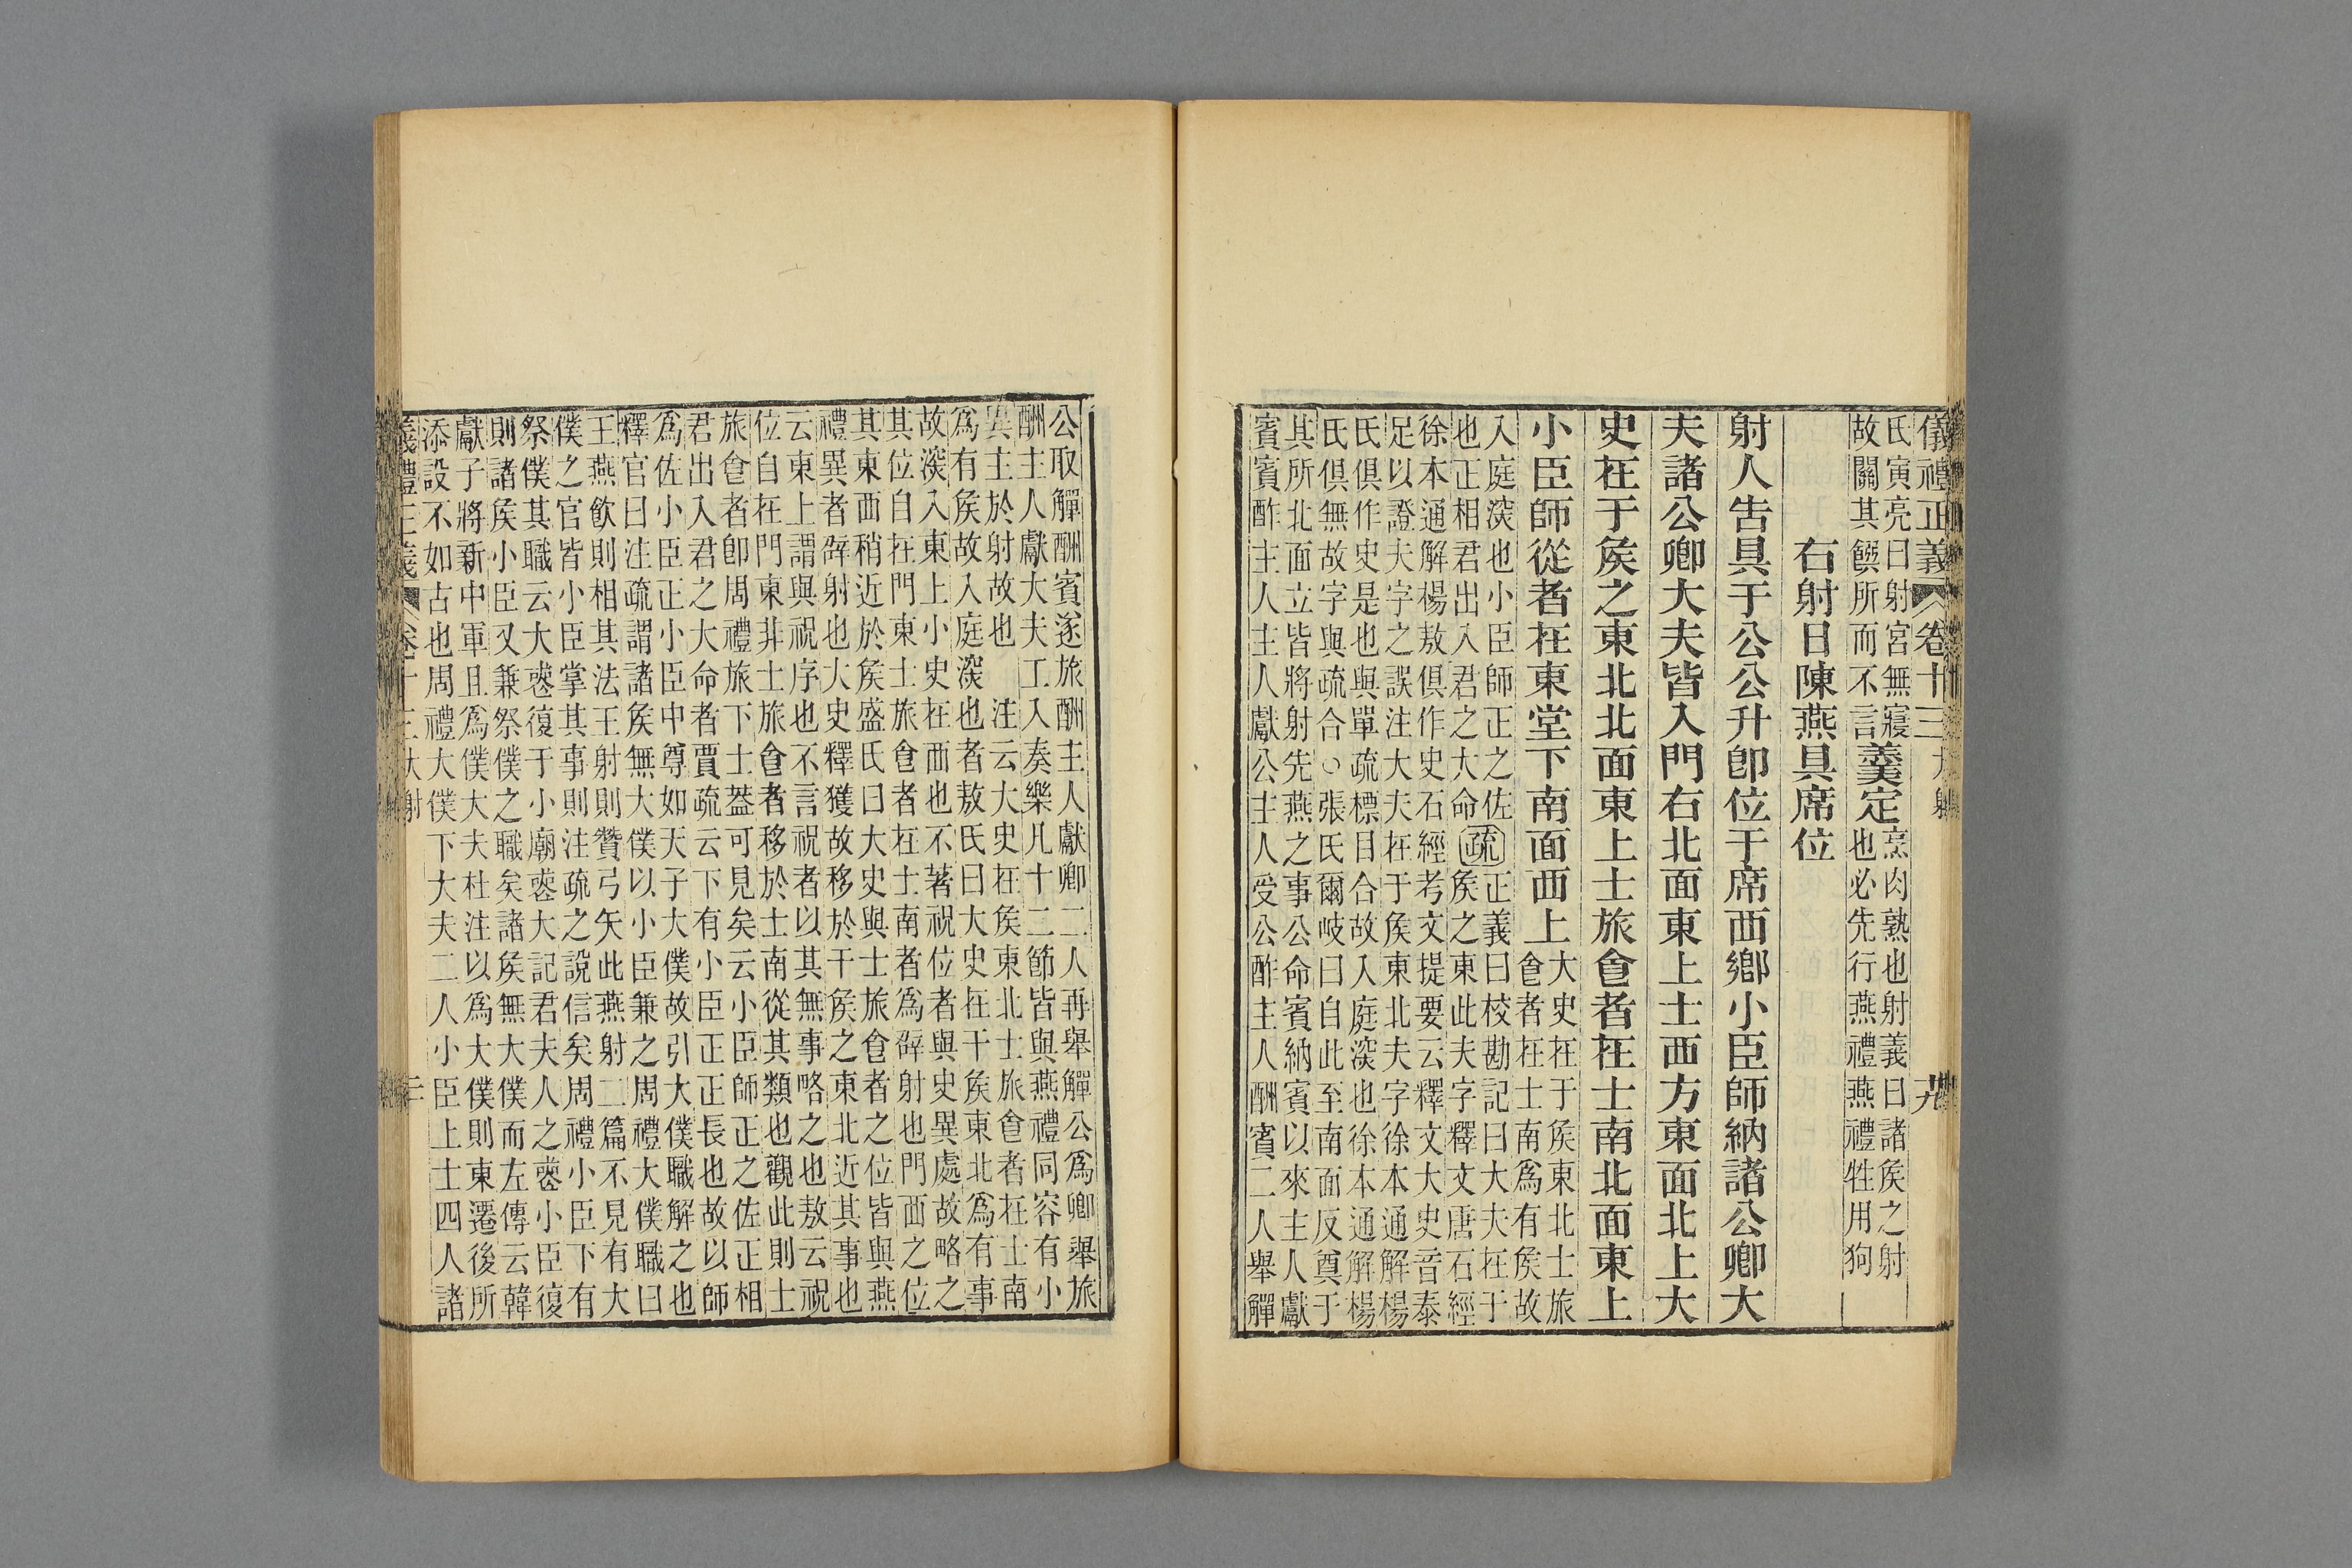 儀禮正義 卷十三 大射
氏寅亮曰射宮無寢
故闕其饌所而不言
羹定
烹肉熟也射義曰諸矦之射
也必先行燕禮燕禮牲用狗
右射日陳燕具席位
射人告具于公公升卽位于席西鄉小臣師納諸公卿大
夫諸公卿大夫皆入門右北面東上士西方東面北上大
史在于矦之東北北面東上士旅食者在士南北面東上
小臣師從者在東堂下南面西上
大史在于矦東北士旅
食者在士南爲有矦故
入庭深也小臣師正之佐
也正相君出入君之大命
疏
正義曰校勘記曰大夫在于
矦之東此夫字釋文唐石經
徐本通解楊敖俱作史石經考文提要云釋文大史音泰
足以證夫字之誤注大夫在于矦東北夫字徐本通解楊
氏俱作史是也與單疏標目合故入庭深也徐本通解楊
氏俱無故字與疏合○張氏爾岐曰自此至南面反奠于
其所北面立皆將射先燕之事公命賓納賓以來主人獻
賓賓酢主人主人獻公主人受公酢主人酬賓二人舉觶
公取觶酬賓遂旅酬主人獻卿二人再舉觶公爲卿舉旅
酬主人獻大夫工入奏樂凡十二節皆與燕禮同容有小
異主於射故也 注云大史在矦東北士旅食者在士南
爲有矦故入庭深也者敖氏曰大史在干矦東北爲有事
故深入東上小史在西也不著祝位者與史異處故略之
其位自在門東士旅食者在士南者爲辟射也門西之位
其東西稍近於矦盛氏曰大史與士旅食者之位皆與燕
禮異者辟射也大史釋獲故移於干矦之東北近其事也
云東上謂與祝序也不言祝者以其無事略之也敖云祝
位自在門東非士旅食者移於士南從其類也觀此則士
旅食者卽周禮旅下士葢可見矣云小臣師正之佐正相
君出入君之大命者賈疏云下有小臣正正長也故以師
爲佐小臣正小臣中尊如天子大僕故引大僕職解之也
釋官曰注疏謂諸矦無大僕以小臣兼之周禮大僕職曰
王燕飲則相其法王射則贊弓矢此燕射二篇不見有大
僕之官皆小臣掌其事則注疏之說信矣周禮小臣下有
祭僕其職云大喪復于小廟喪大記君夫人之喪小臣復
則諸矦小臣又兼祭僕之職矣諸矦無大僕而左傳云韓
獻子將新中軍且爲僕大夫杜注以爲大僕則東遷後所
添設不如古也周禮大僕下大夫二人小臣上士四人諸
義禮正義 卷十三 大射